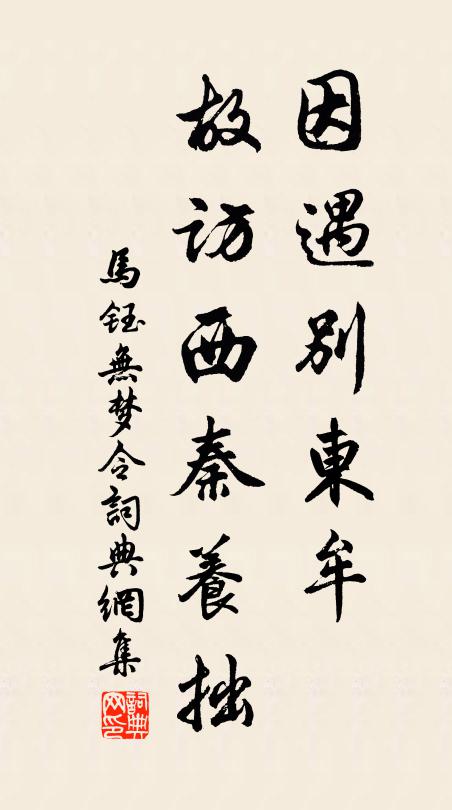 因遇別東牟
故訪西秦養拙
馬鈺無梦令詞典網集
詞典网印